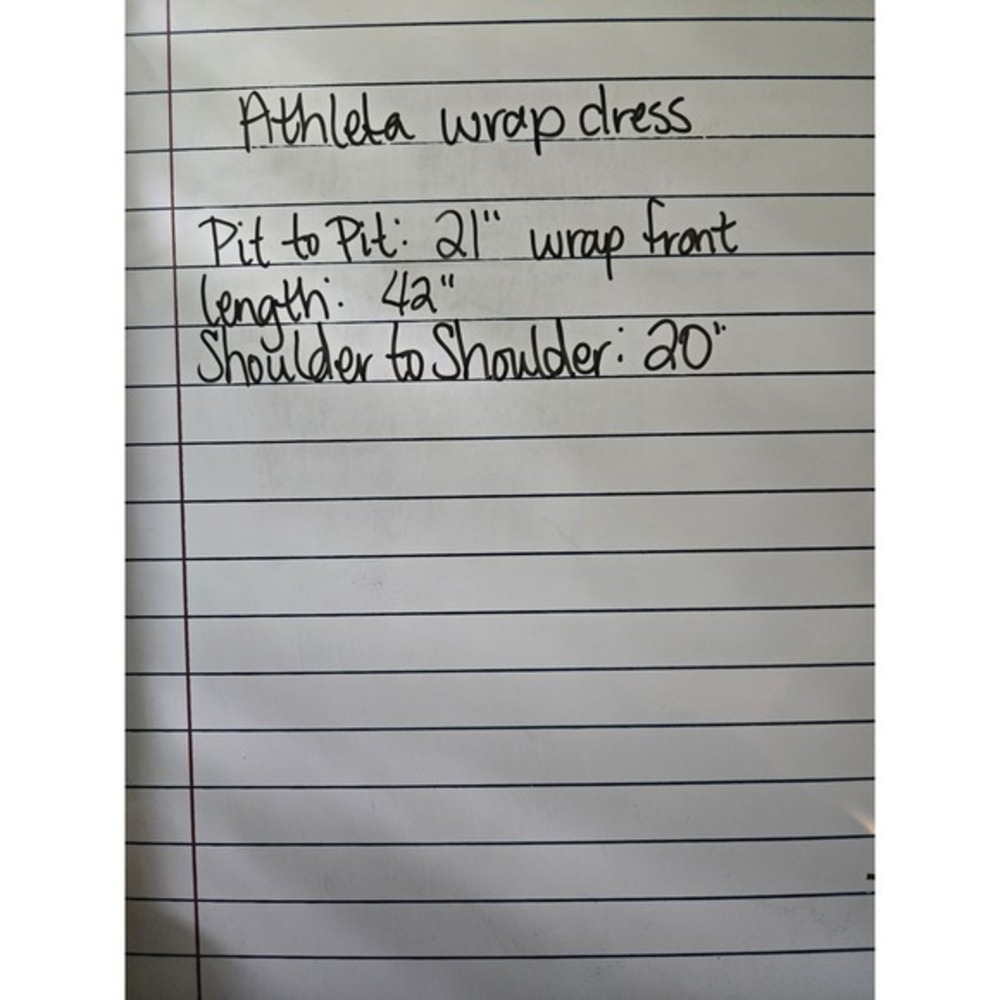 Athleta wrap dress
Pit to Pit: 21" wrap front
length: 42"
Shoulder to Shoulder: 20"